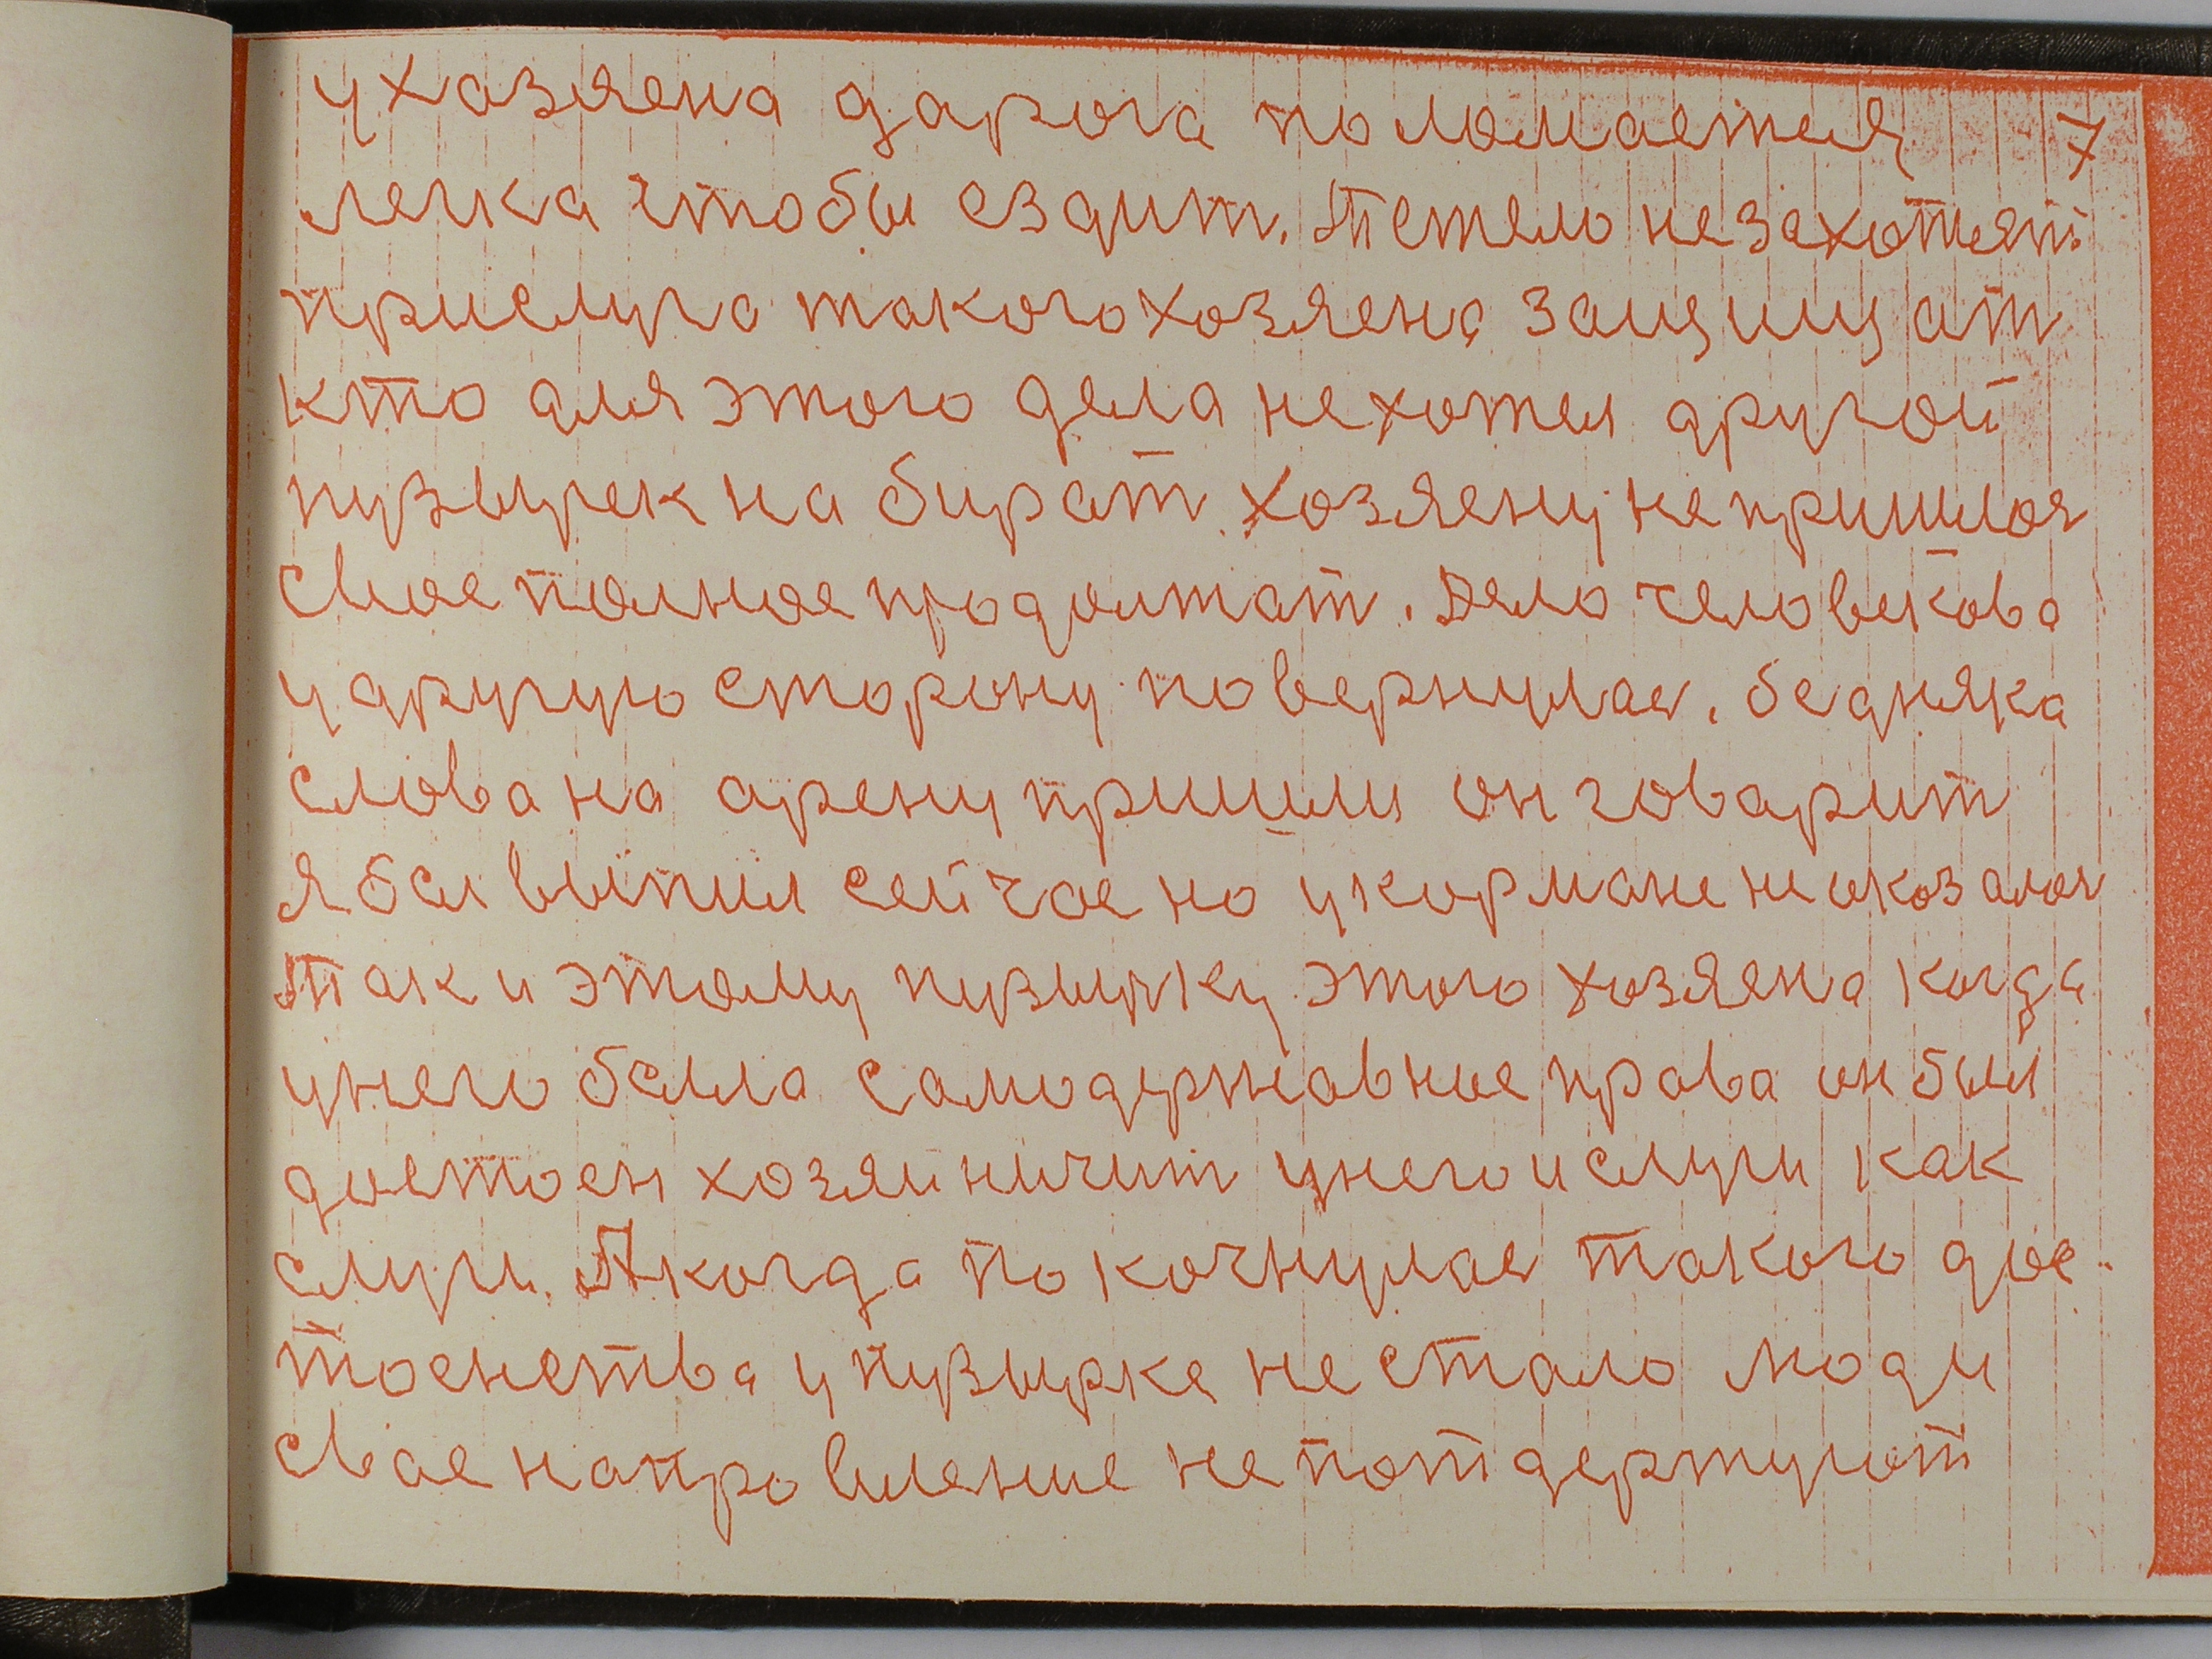 ухазяена дарога поломается 7
легка чтобы ездит. Тетело незахотят
прислуга такогохозяена защищат
кто для этого дела нехотел другой
пузырек на бират. Хозяену непришлоя
свое полное продолжат. Дело человекова
у другую сторону повернулас. бедняка
слова на арену пришли он говарит
я бы выпил сейчас но укормане неоказалоя
Так и этому пузырку этого хозяена когда
унего была самодержавное права он был
достоен хозяйничит унего и слуги как
слуги. А когда покочнулас такого дос-
тоенства у пузырка не стало люди
свае направление не потдержуют